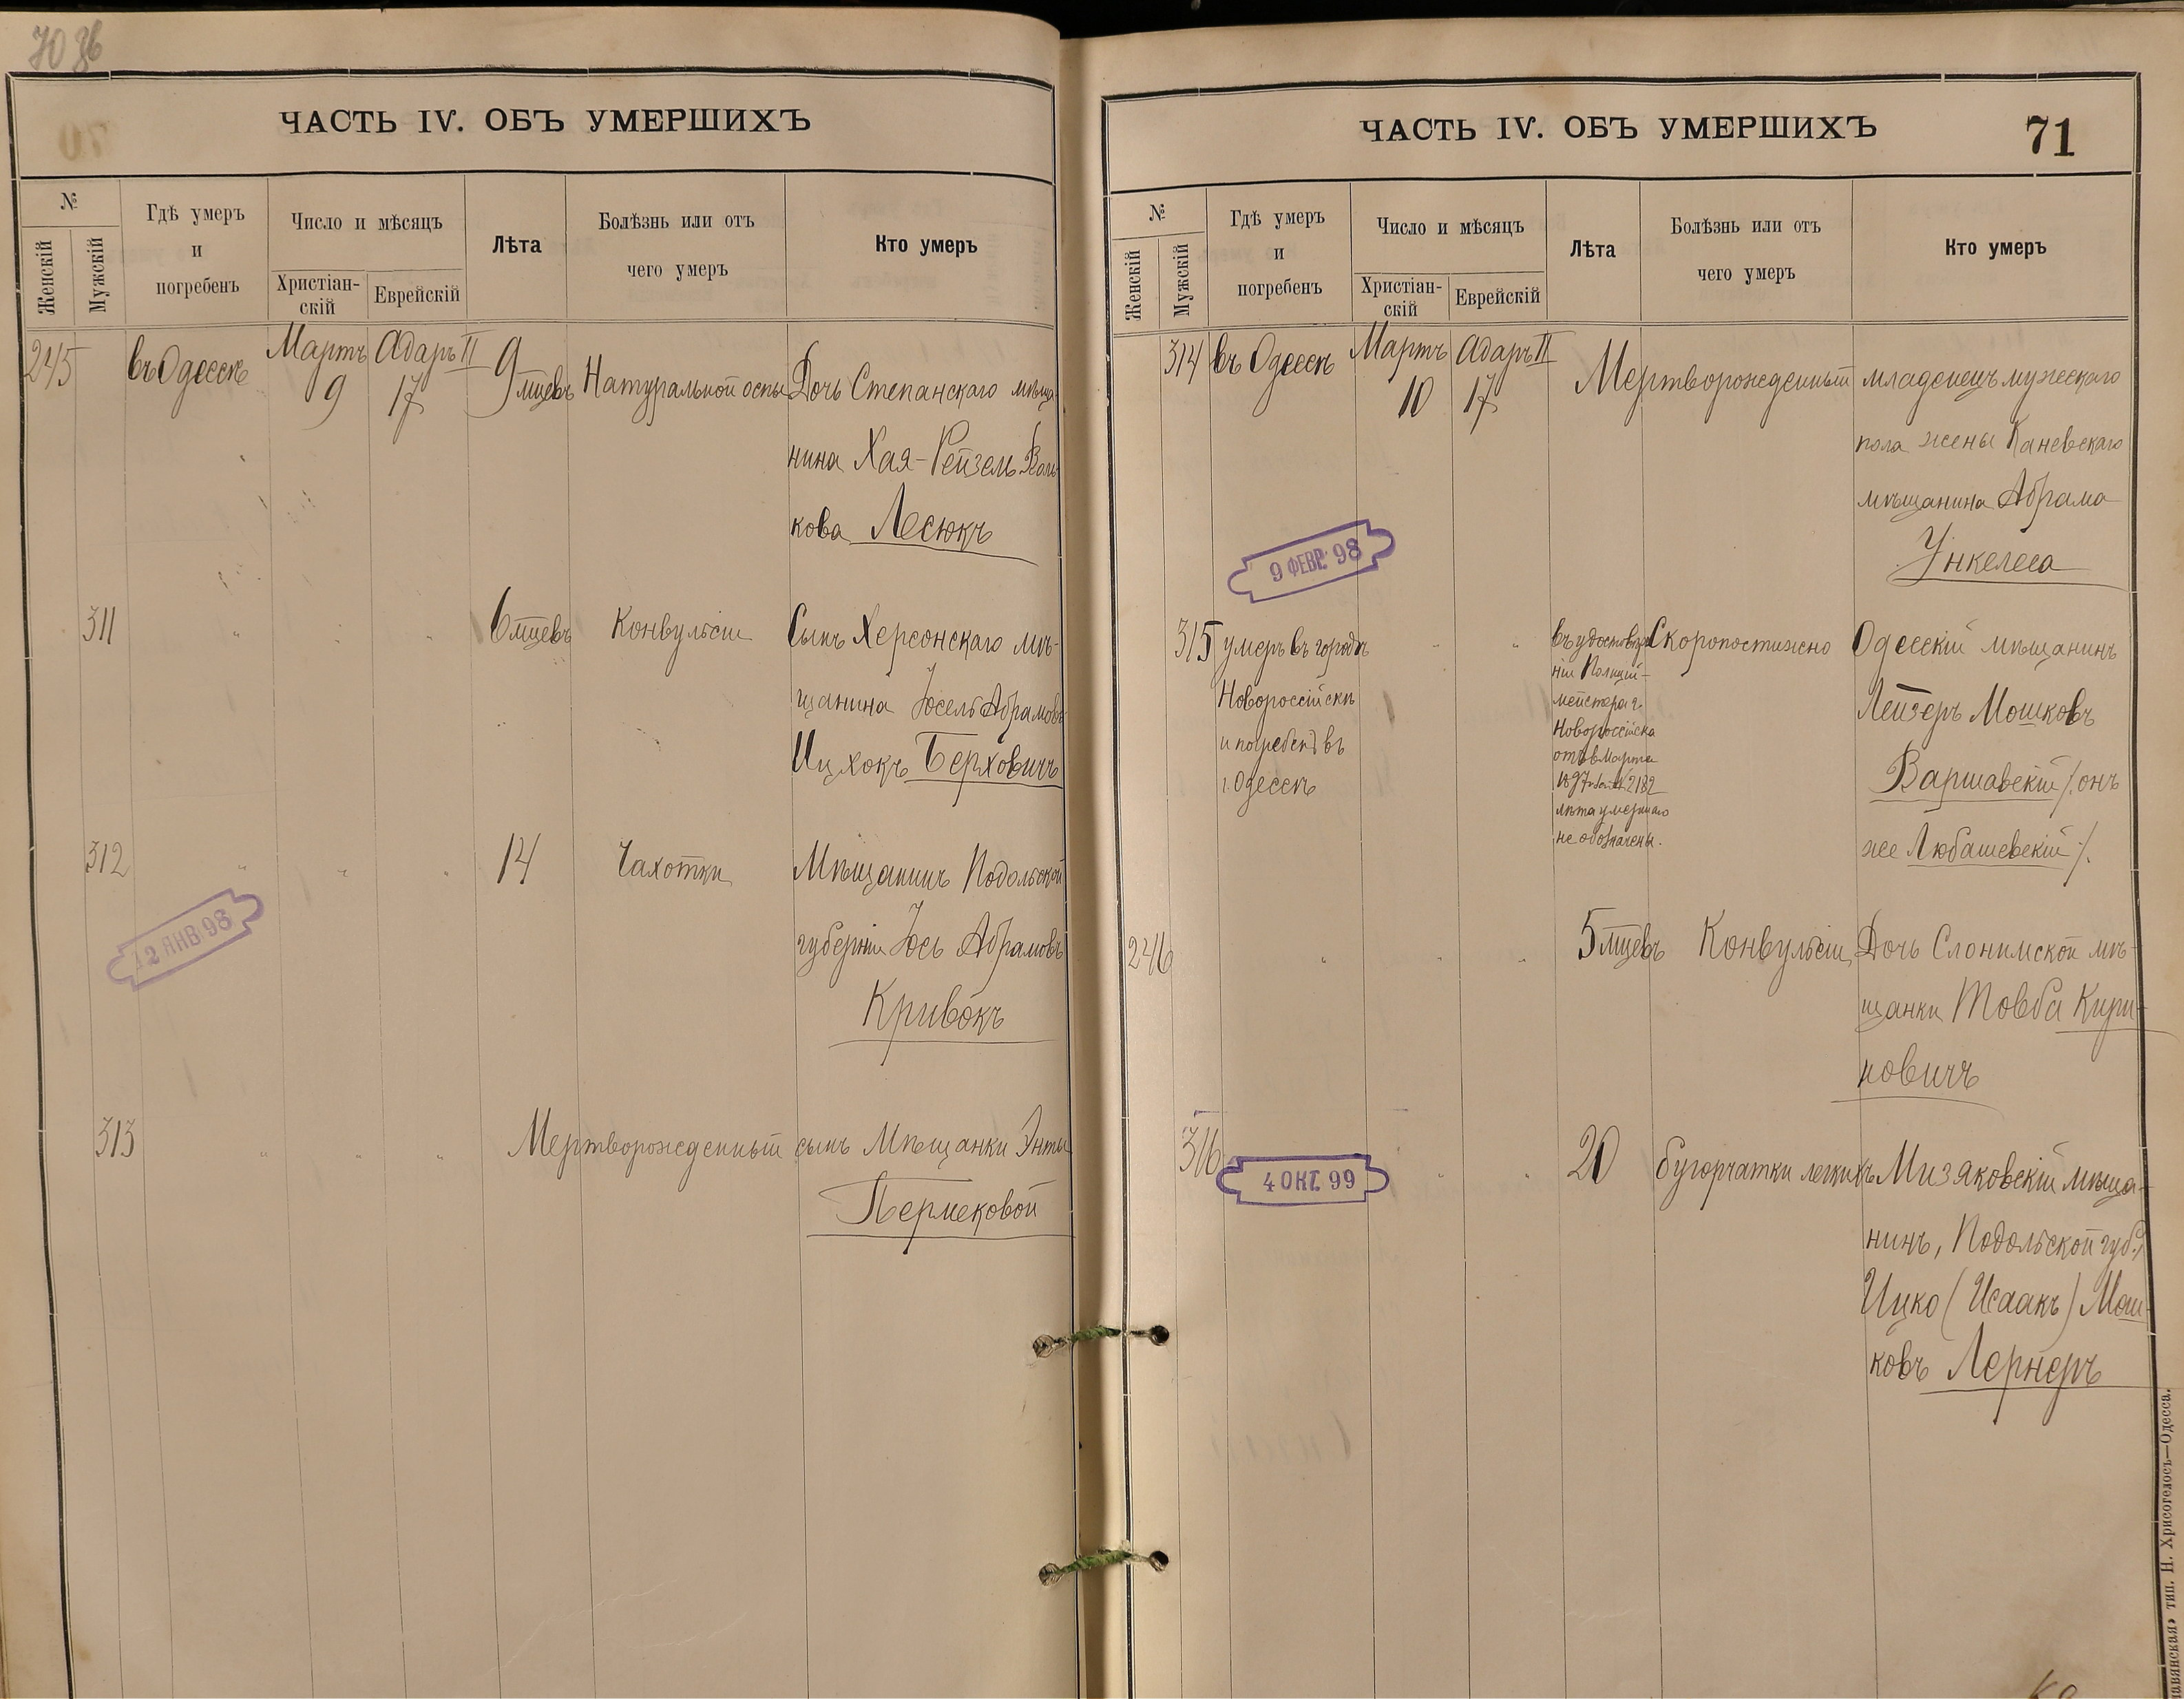 70 зв
ЧАСТЬ IV. ОБЪ УМЕРШИХЪ
№
Женскій
Мужскій
Гдѣ умеръ
и
погребенъ
Число и мѣсяцъ
Христіан-
скій
Еврейскій
Лѣта
Болѣзнь или отъ
чего умеръ
Кто умеръ
245 въ Одессѣ Мартъ 9 Адаръ II 17 9 мцевъ Натуральной оспы Дочь Степанскаго мѣща-
нина Хая-Рейзель Вол-
кова Лесюкъ
311 " " " 6 мцевъ Конвульсіи Сынъ Херсонскаго мѣ-
щанина Іосель Абрамовъ
Ицхокъ Берховичъ
312 " " " 14 Чахотки Мѣщанинъ Подольской
губерніи Іось Абрамовъ
Кривокъ
12 ЯНВ 98
313 " " " Мертворожденный сынъ Мѣщанки Энты
Пермековой
ЧАСТЬ IV. ОБЪ УМЕРШИХЪ
71
№
Женскій
Мужскій
Гдѣ умеръ
и
погребенъ
Число и мѣсяцъ
Христіан-
скій
Еврейскій
Лѣта
Болѣзнь или отъ
чего умеръ
Кто умеръ
314 въ Одессѣ Мартъ 10 Адаръ II 17 Мертворожденный младенецъ мужескаго
пола жены Каневскаго
мѣщанина Абрама
Ункелеса
9 ФЕВР. 98
315 умеръ въ городѣ
Новороссійскѣ
и погребенъ въ
г. Одессѣ
" "
въ удостовѣре
ніи Полицій-
мейстера г.
Новороссійска
отъ 8 Марта
1897 за № 2182
лѣта умершаго
не обозначены.
Скоропостижно
Одесскій мѣщанинъ
Лейзеръ Мошковъ
Варшавскій /. онъ
же Любашевскій /.
246 " " " 5 мцевъ Конвульсіи Дочь Слонимской мѣ-
щанки Товба Кири-
новичъ
316 " " 20 бугорчатки легкихъ Мизяковскій мѣща-
нинъ, Подольской губ.,
Ицко (Исаакъ) Мош-
ковъ Лернеръ
4 ОКТ. 99
тип. Н. Хрисогелосъ—Одесса.